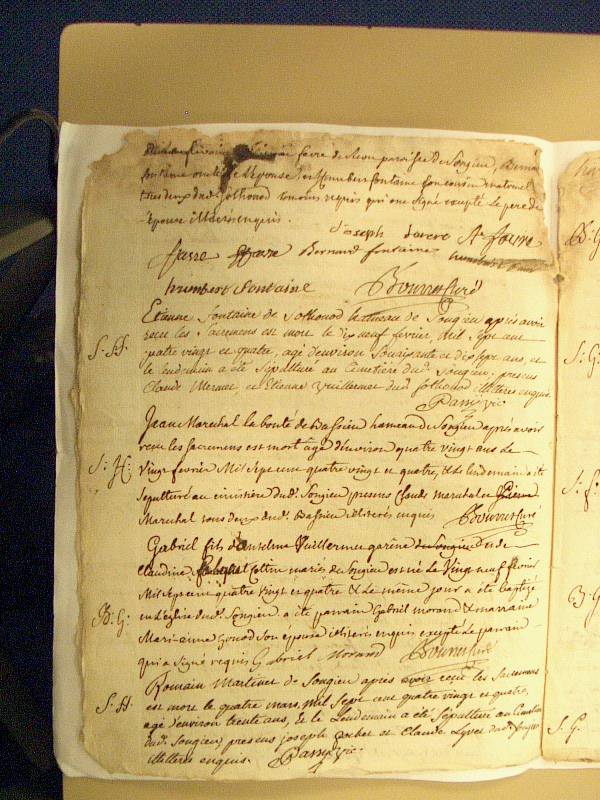 favre de Sion paroisse de Songieu, Bernard
fontaine oncle de l'épouse, et humbert fontaine son cousin maternel
tous deux dud. Sothonod temoins requis qui ont signé excepté le pere de
l'epouse illiteré enquis.
Joseph favre
favre favre Bernard fontaine
humbert fontaine Bourret curé
Etienne fontaine de Sothonod hameau de Songieu après avoir
recu les Sacremens est mort le dix neuf fevrier, Mil Sept cent
S: H. quatre vingt et quatre, agé d'environ Soixante et dix sept ans, et
le lendemain a été Sepulturé au Cemetière dud. Songieu, presens
Claude Mermet, et Etienne Vuillermet dud. Sothonod illiterés enquis.
Passy vic.
Jean Marechal le bouté de Bassieu hameau de Songieu après avoir
recu les Sacremens est mort agé d'environ quatre vingt ans Le
S: H: Vingt fevrier Mil Sept cent quatre vingt et quatre, & le lendemain a été
Sepulturé au cimetière dud. Songieu presens Claude marechal et
Marechal tous deux dud. Bassieu illiterés enquis Bourret curé
Gabriel fils d'anselme Vuillermet garène de Songieu et de
Claudine Cottin mariés de Songieu est né Le Vingt neuf fevrier
Mil Sept cent quatre vingt et quatre & Le même jour a été baptisé
B: G: en l'église dud. Songieu. a été parrain Gabriel morand & marraine
Marianne Gonod Son épouse illiterée enquise excepté Le parrain
qui a Signé requis Gabriel Morand Bourret curé
Romain Martinet de Songieu après avoir reçu les Sacremens
S: H. est mort le quatre mars, mil Sept cent quatre vingt et quatre,
agé d'environ trente ans, & le Lendemain a été Sepulturé au Cemetière
dud. Songieu, presens joseph et Claude dud. Songieu
illiterés enquis. Passy vic.
B: G
S: G
S: f.
B: G
S: G.